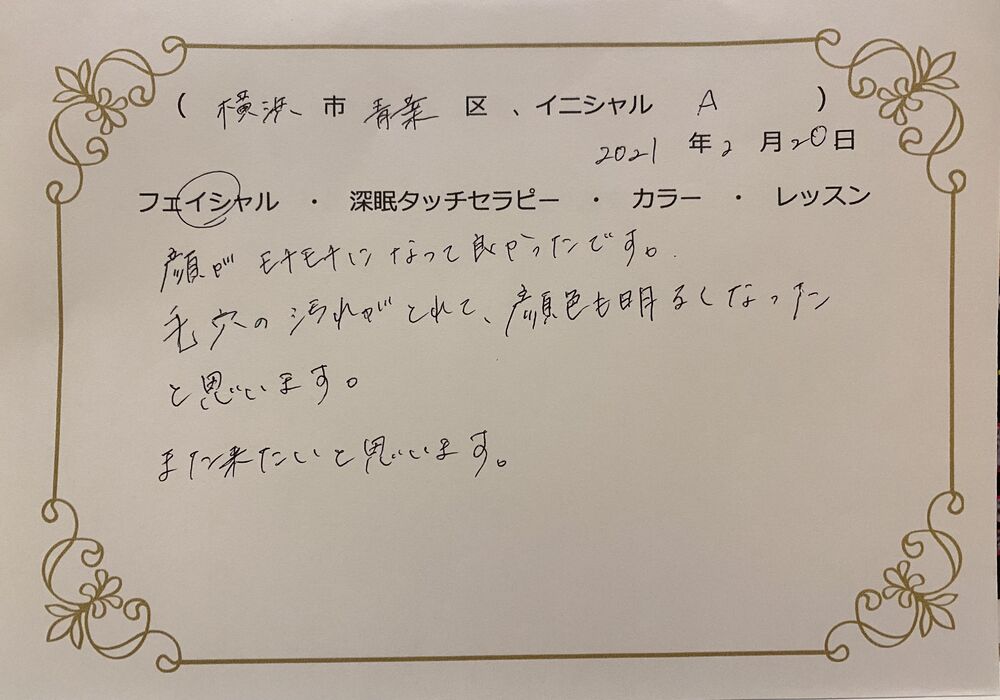 ( 横浜 市 青葉 区 、イニシャル A )
2021 年 2 月 20 日
フェイシャル ・ 深眠タッチセラピー ・ カラー ・ レッスン
顔が モチモチに なって 良かったです。
毛穴の 汚れがとれて、顔色も明るくなった
と思います。
また来たいと思います。